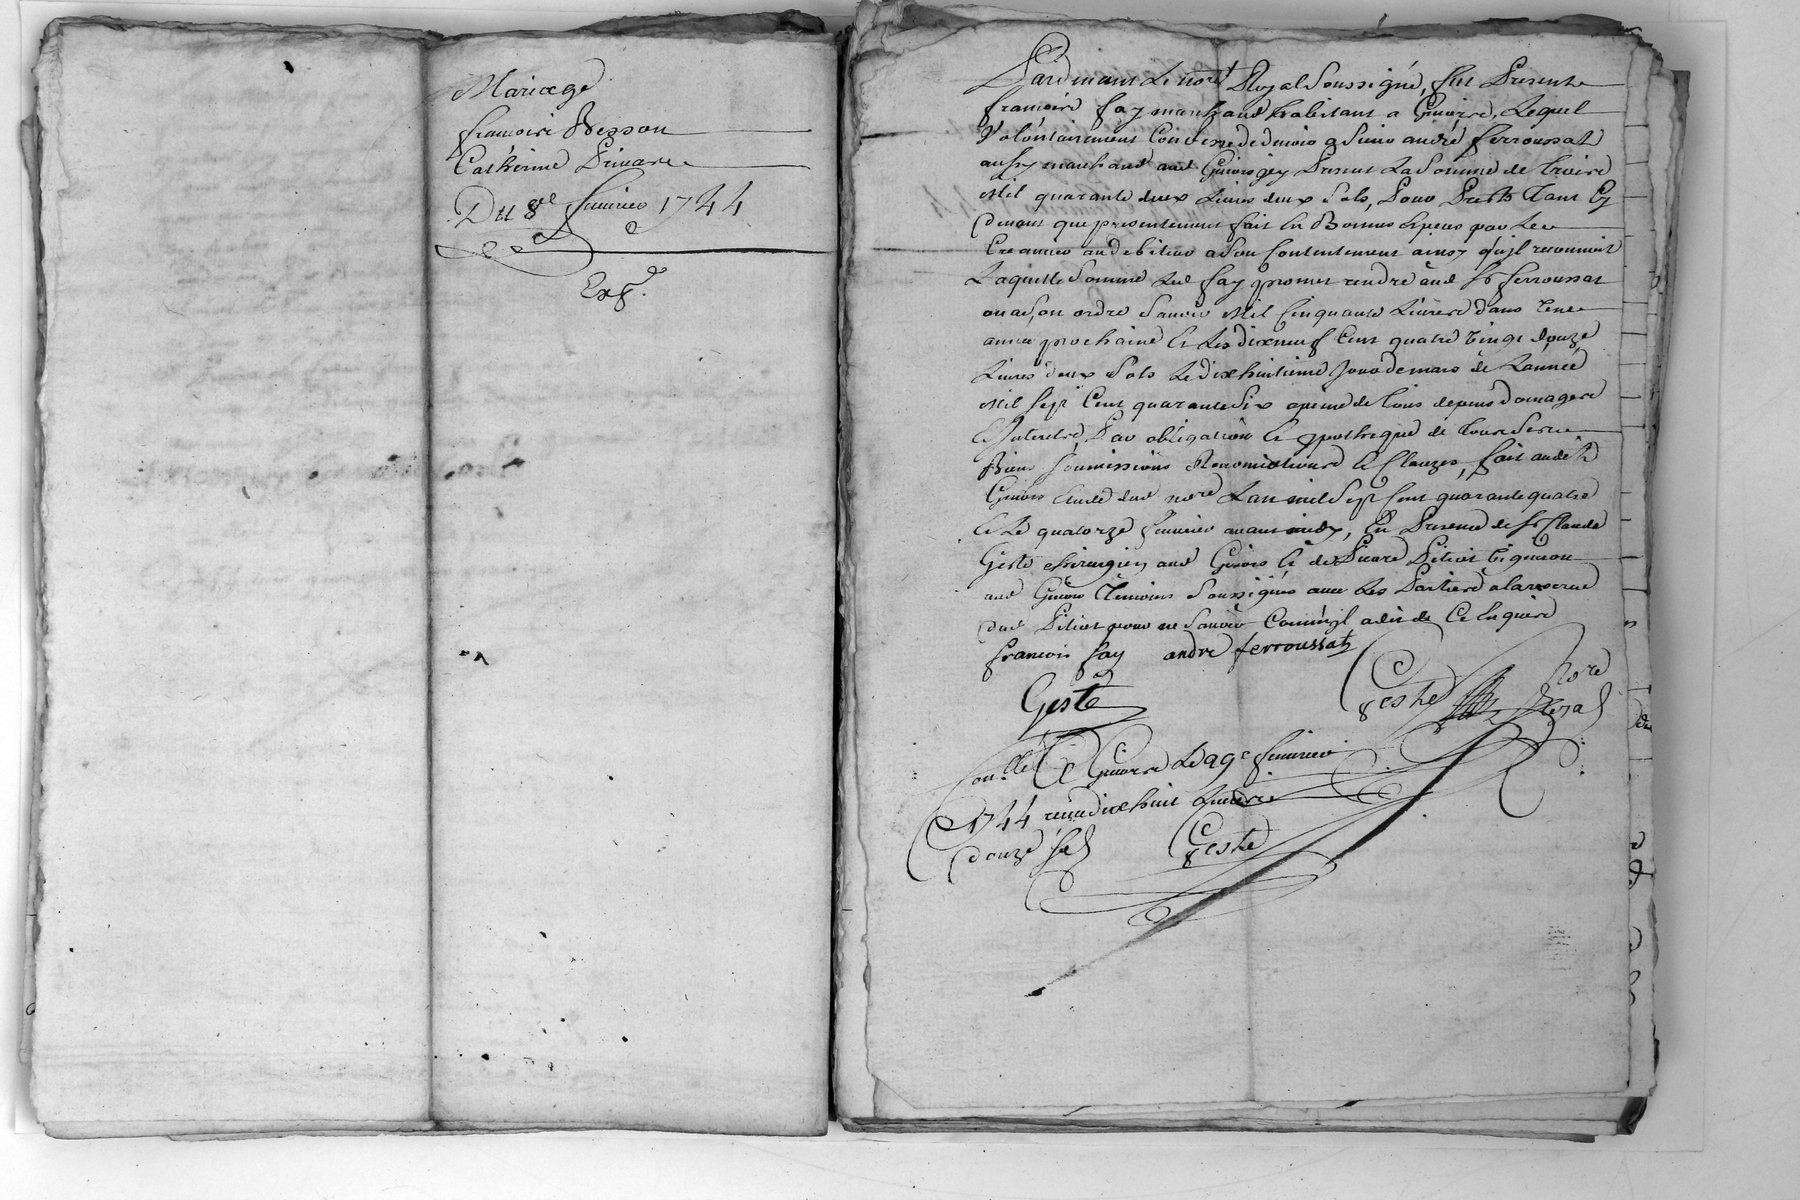 Mariage
francoise Besson
Catherine Primare
Du 8e feuvrier 1744
Exp.
Pardevant Le nore Royal Soussigné, fut Presente
francois fay marchand habitant a Givors, Lequel
Volontairement Confesse devoir a Sieur andré ferroussat
aussy marchand aud Givors icy Present La Somme de trois
Mil quarante deux Livres deux Sols, Pour Prest tant Cy
devant que presentement fait En Bonnes Especes par Le
Creancier au debiteur a Son Contentement ainsy qu'il reconnoit
Laquelle Somme Led fay promet rendre aud Sr ferroussat
ou a Son ordre Sauoir Mil Cinquante Livres dans Une
année prochaine Et Les dixneuf Cent quatre vingt douze
Livres deux Sols Le dixhuitieme Jour de mars de Lannée
Mil Sept Cent quarante Six apeine de tous depens domages
Et Interests, Par obligation Et ypotheque de tous Ses
Biens Soumissions Renonciations Et Clauzes, fait audit
Givors Etude dud nore Lan mil Sept Cent quarante quatre
Et Le quatorze feuvrier avant midy, En Presence de Sr Claude
Geste chirurgien aud Givors Et de Pierre Pitiot Vigneron
aud Givors Témoins Soussignés avec Les Parties a la reserve
dud Pitiot pour ne Sauoir Comme il a dit de Ce Enquis
francois fay andré ferroussat
Geste Geste nore Royal
Con.llé A Givors Le 29e feuvrier
1744 reçu dixhuit Livres
douze Sols Geste